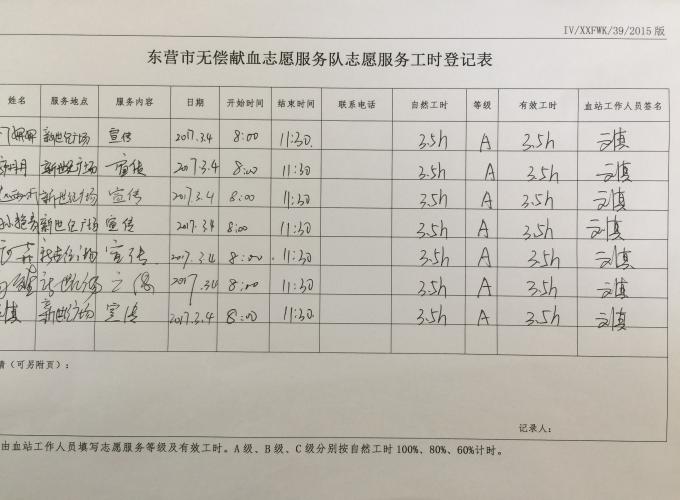 IV/XXFWK/39/2015 版
东营市无偿献血志愿服务队志愿服务工时登记表
姓名 服务地点 服务内容 日期 开始时间 结束时间 联系电话 自然工时 等级 有效工时 血站工作人员签名
新世纪广场 宣传 2017.3.4 8:00 11:30. 3.5h A 3.5h 刘慎
新世纪广场 宣传 2017.3.4 8:00 11:30 3.5h A 3.5h 刘慎
新世纪广场 宣传 2017.3.4 8:00 11:30 3.5h A 3.5h 刘慎
新世纪广场 宣传 2017.3.4 8:00 11:30 3.5h A 3.5h 刘慎
宣传 2017.3.4 8:00 11:30 3.5h A 3.5h 刘慎
2017.3.4 8:00 11:30 3.5h A 3.5h 刘慎
新世纪广场 宣传 2017.3.4 8:00 11:30 3.5h A 3.5h 刘慎
(可另附页):
记录人:
由血站工作人员填写志愿服务等级及有效工时。A 级、B 级、C 级分别按自然工时 100%、80%、60%计时。